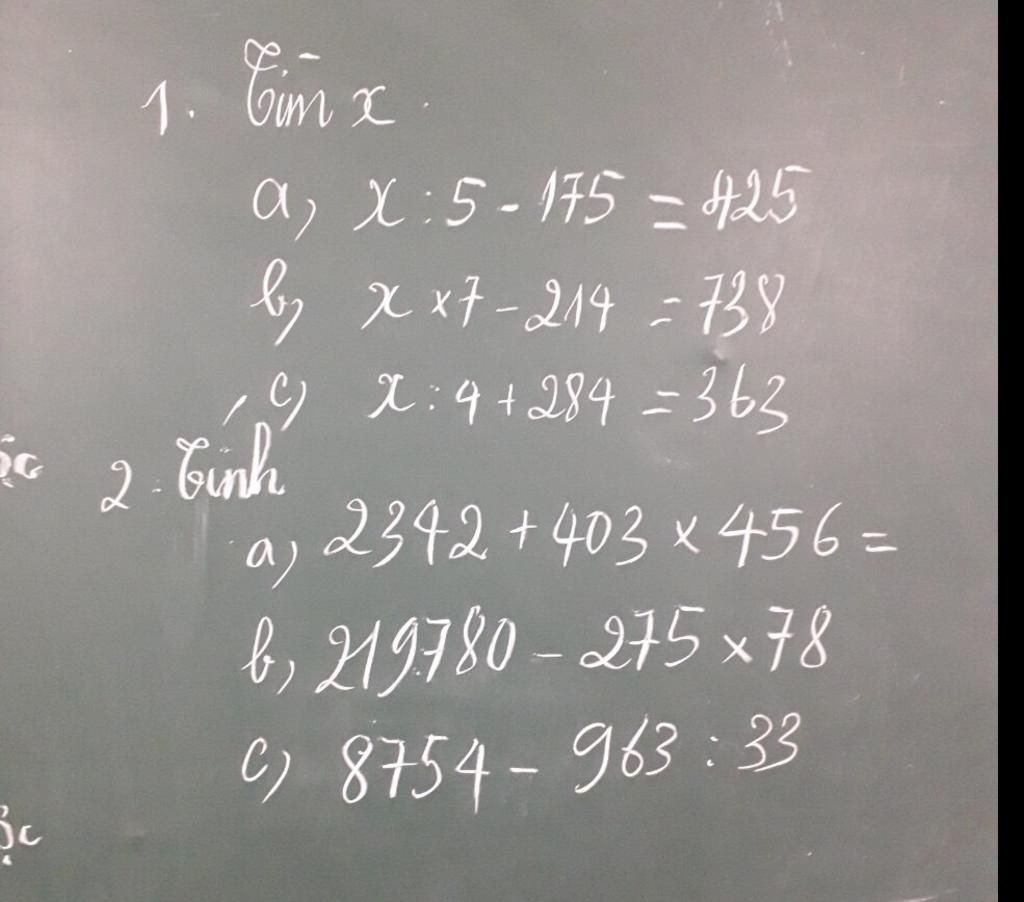 1. Tìm x
a) x : 5 - 175 = 425
b) x × 7 - 214 = 738
c) x : 4 + 284 = 363
2. Tính
a) 2342 + 403 × 456 =
b) 219780 - 275 × 78
c) 8754 - 963 : 33